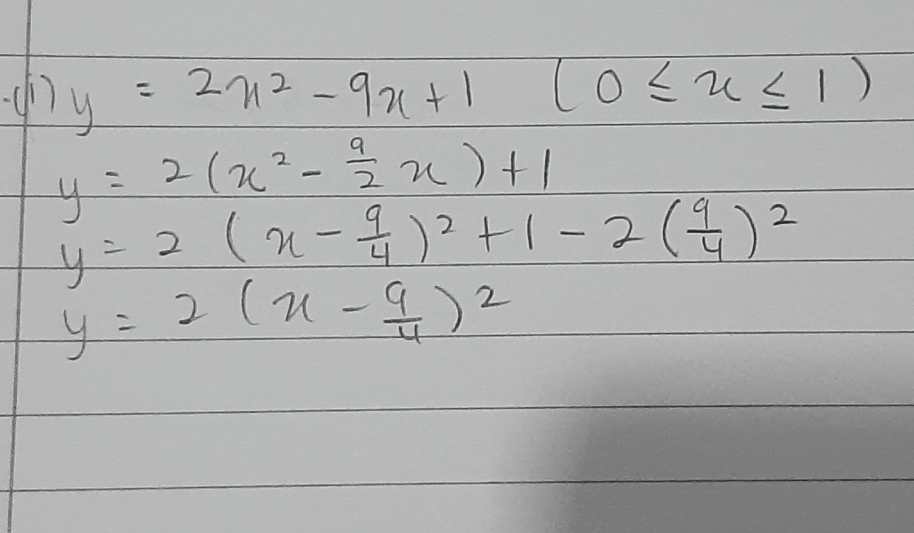 (1) y = 2x² - 9x + 1 (0 ≤ x ≤ 1)
y = 2(x² - 9/2 x) + 1
y = 2 (x - 9/4)² + 1 - 2(9/4)²
y = 2 (x - 9/4)²